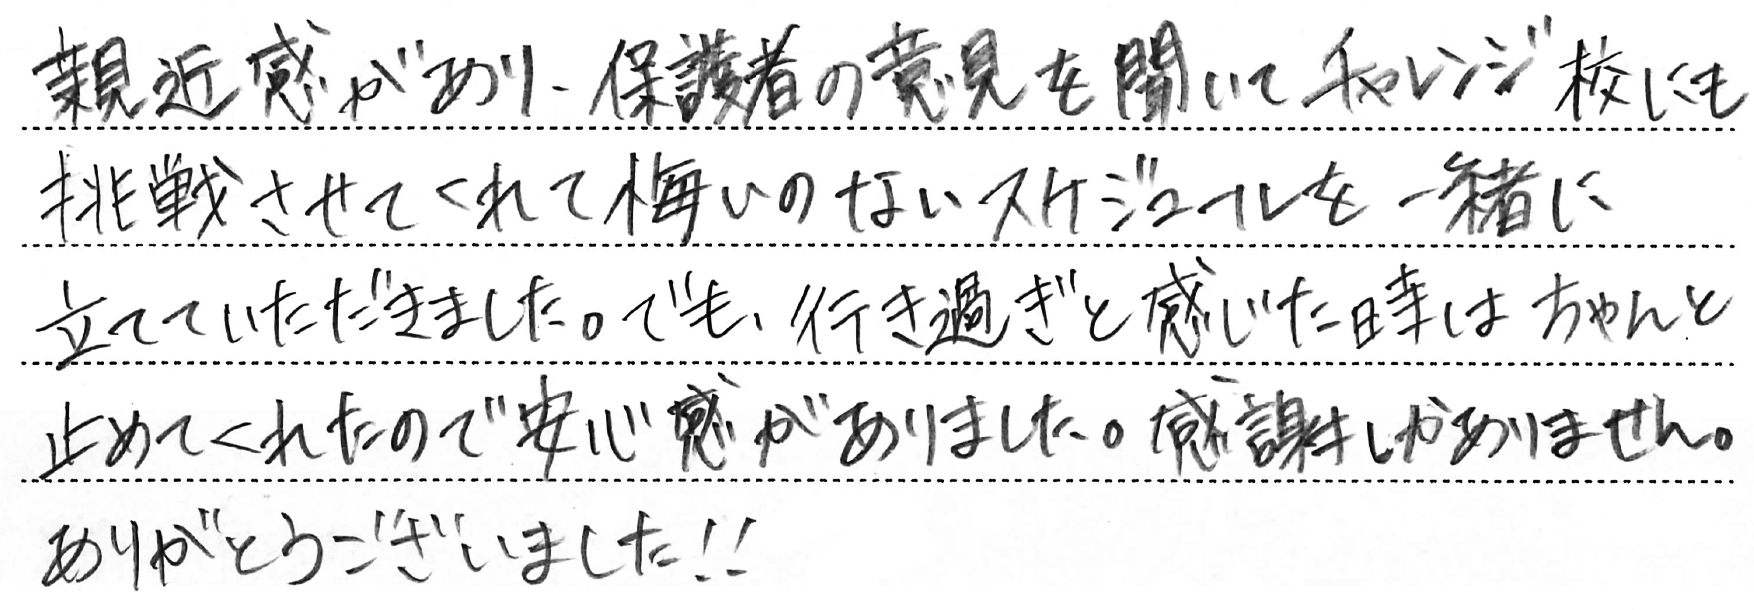 親近感があり、保護者の意見を聞いてチャレンジ校にも
挑戦させてくれて悔いのないスケジュールを一緒に
立てていただきました。でも、行き過ぎと感じた時はちゃんと
止めてくれたので安心感がありました。感謝しかありません。
ありがとうございました!!